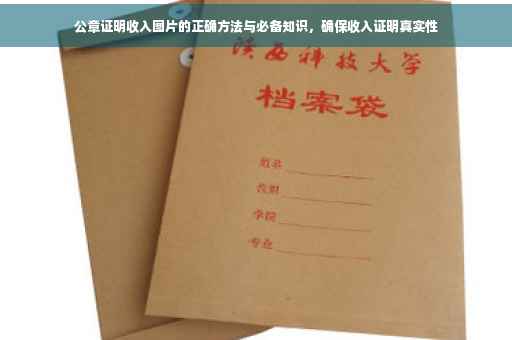 公章证明收入图片的正确方法与必备知识，确保收入证明真实性
陕西科技大学
档案袋
姓名
性别
学院
专业